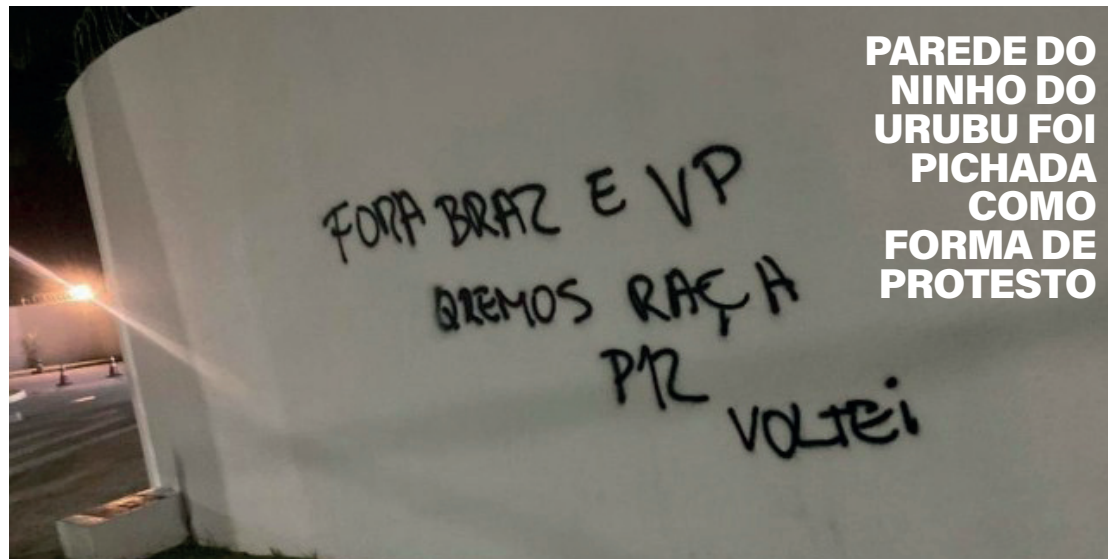 PAREDE DO
NINHO DO
URUBU FOI
PICHADA
COMO
FORMA DE
PROTESTO
FORA BRAZ E VP
QREMOS RAÇA
P12
VOLTEi